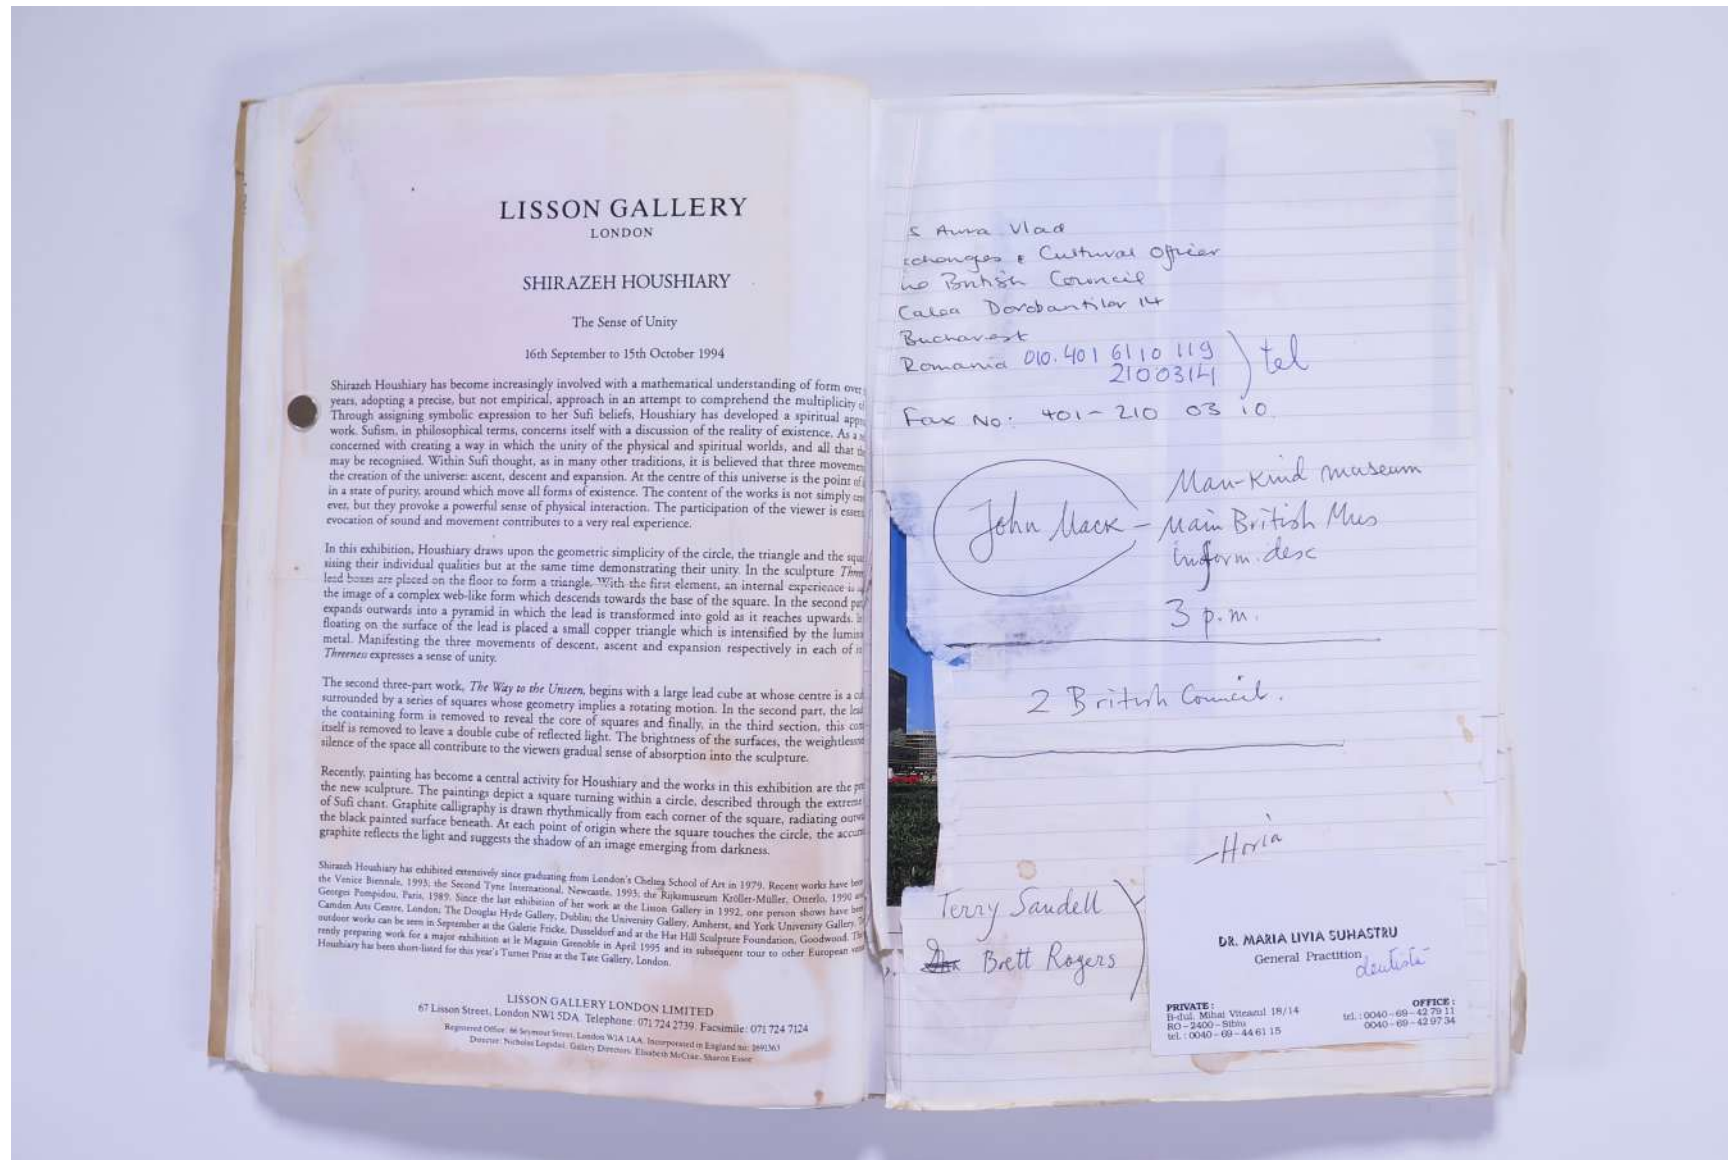 LISSON GALLERY
LONDON
SHIRAZEH HOUSHIARY
The Sense of Unity
16th September to 15th October 1994
Shirazeh Houshiary has become increasingly involved with a mathematical understanding of form over
years, adopting a precise, but not empirical, approach in an attempt to comprehend the multiplicity
Through assigning symbolic expression to her Sufi beliefs, Houshiary has developed a spiritual
work. Sufism, in philosophical terms, concerns itself with a discussion of the reality of existence. As a
concerned with creating a way in which the unity of the physical and spiritual worlds, and all that
may be recognised. Within Sufi thought, as in many other traditions, it is believed that three
the creation of the universe: ascent, descent and expansion. At the centre of this universe is the point of
in a state of purity, around which move all forms of existence. The content of the works is not simply
ever, but they provoke a powerful sense of physical interaction. The participation of the viewer is
evocation of sound and movement contributes to a very real experience.
In this exhibition, Houshiary draws upon the geometric simplicity of the circle, the triangle and the
sising their individual qualities but at the same time demonstrating their unity. In the sculpture
lead boxes are placed on the floor to form a triangle. With the first element, an internal experience is
the image of a complex web-like form which descends towards the base of the square. In the second
expands outwards into a pyramid in which the lead is transformed into gold as it reaches upwards.
floating on the surface of the lead is placed a small copper triangle which is intensified by the
metal. Manifesting the three movements of descent, ascent and expansion respectively in each of
Threeness expresses a sense of unity.
The second three-part work, The Way to the Unseen, begins with a large lead cube at whose centre is a
surrounded by a series of squares whose geometry implies a rotating motion. In the second part, the
the containing form is removed to reveal the core of squares and finally, in the third section, this
itself is removed to leave a double cube of reflected light. The brightness of the surfaces, the
silence of the space all contribute to the viewers gradual sense of absorption into the sculpture.
Recently, painting has become a central activity for Houshiary and the works in this exhibition are the
the new sculpture. The paintings depict a square turning within a circle, described through the extreme
of Sufi chant. Graphite calligraphy is drawn rhythmically from each corner of the square, radiating
the black painted surface beneath. At each point of origin where the square touches the circle, the
graphite reflects the light and suggests the shadow of an image emerging from darkness.
Shirazeh Houshiary has exhibited extensively since graduating from London's Chelsea School of Art in 1979. Recent works have
the Venice Biennale, 1993; the Second Tyne International, Newcastle, 1993; the Rijksmuseum Kröller-Müller, Otterlo, 1990
Georges Pompidou, Paris, 1989. Since the last exhibition of her work at the Lisson Gallery in 1992, one person shows have
Camden Arts Centre, London; The Douglas Hyde Gallery, Dublin; the University Gallery, Amherst, and York University Gallery,
outdoor works can be seen in September at the Galerie Fricke, Dusseldorf and at the Hat Hill Sculpture Foundation, Goodwood.
rently preparing work for a major exhibition at le Magasin Grenoble in April 1995 and its subsequent tour to other European
Houshiary has been short-listed for this year's Turner Prize at the Tate Gallery, London.
LISSON GALLERY LONDON LIMITED
67 Lisson Street, London NW1 5DA. Telephone: 071 724 2739. Facsimile: 071 724 7124
Registered Office: 66 Seymour Street, London W1A 1AA. Incorporated in England no: 2691563
Director: Nicholas Logsdail. Gallery Directors: Elisabeth McCrae, Sharon Essor
s Aura Vlad
changes & Cultural Officer
he British Council
Calea Dorobantilor 14
Bucharest
Romania 010.401 6110 119
2100314 ) tel
Fax No: 401-210 03 10.
Man-Kind museum
John Mack - Main British Mus
inform. desc
3 p.m.
2 British Council.
Horia
Terry Sandell
Brett Rogers
DR. MARIA LIVIA SUHASTRU
General Practition
dentistă
PRIVATE :
B-dul. Mihai Viteazul 18/14
RO-2400-Sibiu
tel. : 0040-69-44 61 15
OFFICE :
tel. : 0040-69-42 79 11
0040-69-42 97 34